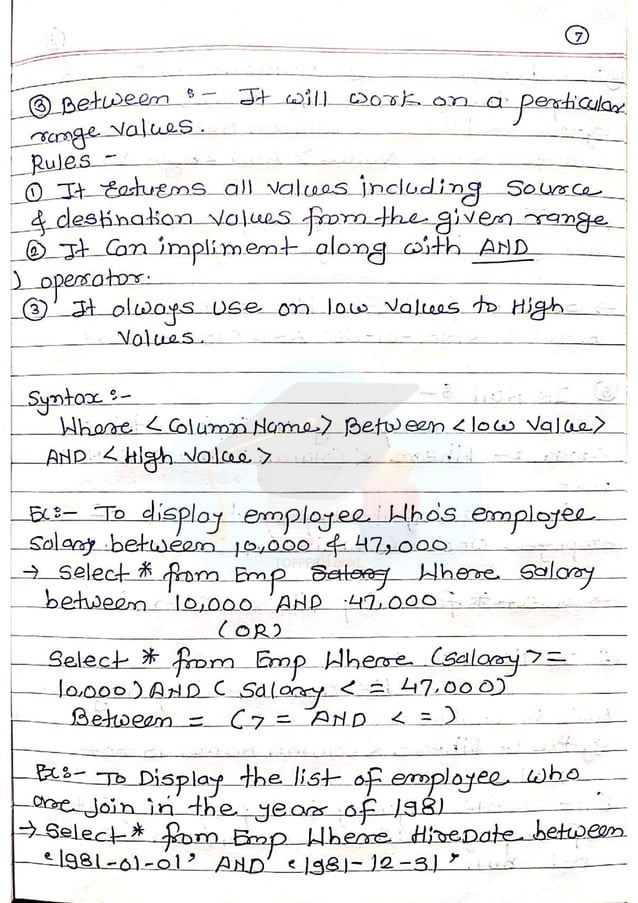 7
③ Between :- It will work on a perticular
range values.
Rules -
① It returns all values including Source
& destination values from the given range
② It Can impliment along with AND
) operator.
③ It always use on low values to High
Values.
Syntax :-
Where <Column Name> Between <low Value>
AND <High Value>
Ex:- To display employee Who's employee
Salary between 10,000 & 47,000
→ Select * from Emp Salary Where Salary
between 10,000 AND 47,000
(OR)
Select * from Emp Where (Salary >=
10,000) AND ( Salary < = 47,000)
Between = (> = AND < = )
Ex:- To Display the list of employee who
are join in the year of 1981
→ Select * from Emp Where HireDate between
'1981-01-01' AND '1981-12-31'